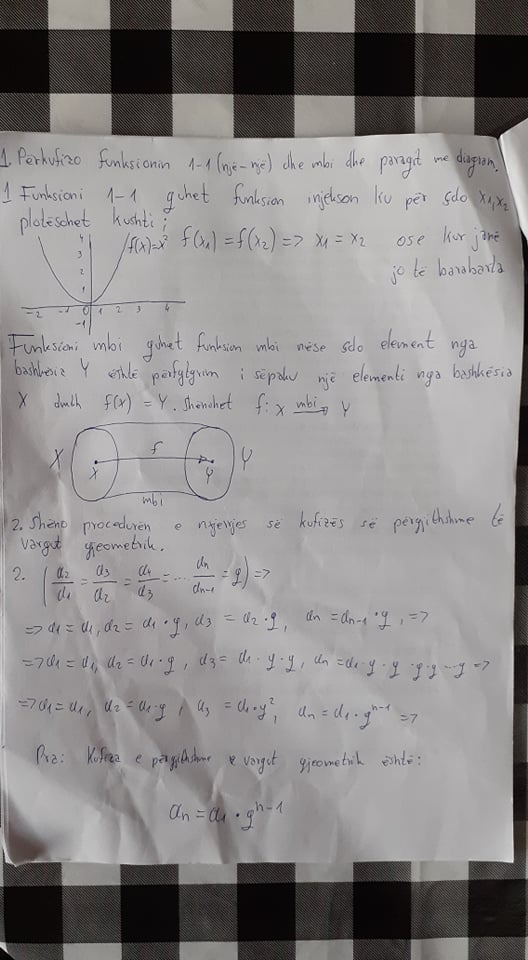 1. Përkufizo funksionin 1-1 (një-një) dhe mbi dhe paraqit me diagram.
1 Funksioni 1-1 quhet funksion injekson ku për sdo x1,x2
plotësohet kushti:
f(x)=x²
f(x1) = f(x2) => x1 = x2 ose kur janë
jo të barabarta
4
3
2
1
-2 -1 0 1 2 3 4
-1
Funksioni mbi quhet funksion mbi nëse sdo element nga
bashkësia Y është përfytyrim i sëpaku një elementi nga bashkësia
X dmth f(x) = Y. Shënohet f: X mbi→ Y
X x f y Y
mbi
2. Shëno procedurën e nxjerrjes së kufizës së përgjithshme të
vargut gjeometrik.
2. (a2/a1 = a3/a2 = a4/a3 = ... an/an-1 = q) =>
=> a1 = a1, a2 = a1 · q, a3 = a2 · q, an = an-1 · q, =>
=> a1 = a1, a2 = a1 · q, a3 = a1 · q · q, an = a1 · q · q · q · q ... q =>
=> a1 = a1, a2 = a1 · q, a3 = a1 · q², an = a1 · q^n-1 =>
Pra: Kufiza e përgjithshme e vargut gjeometrik është:
an = a1 · q^n-1